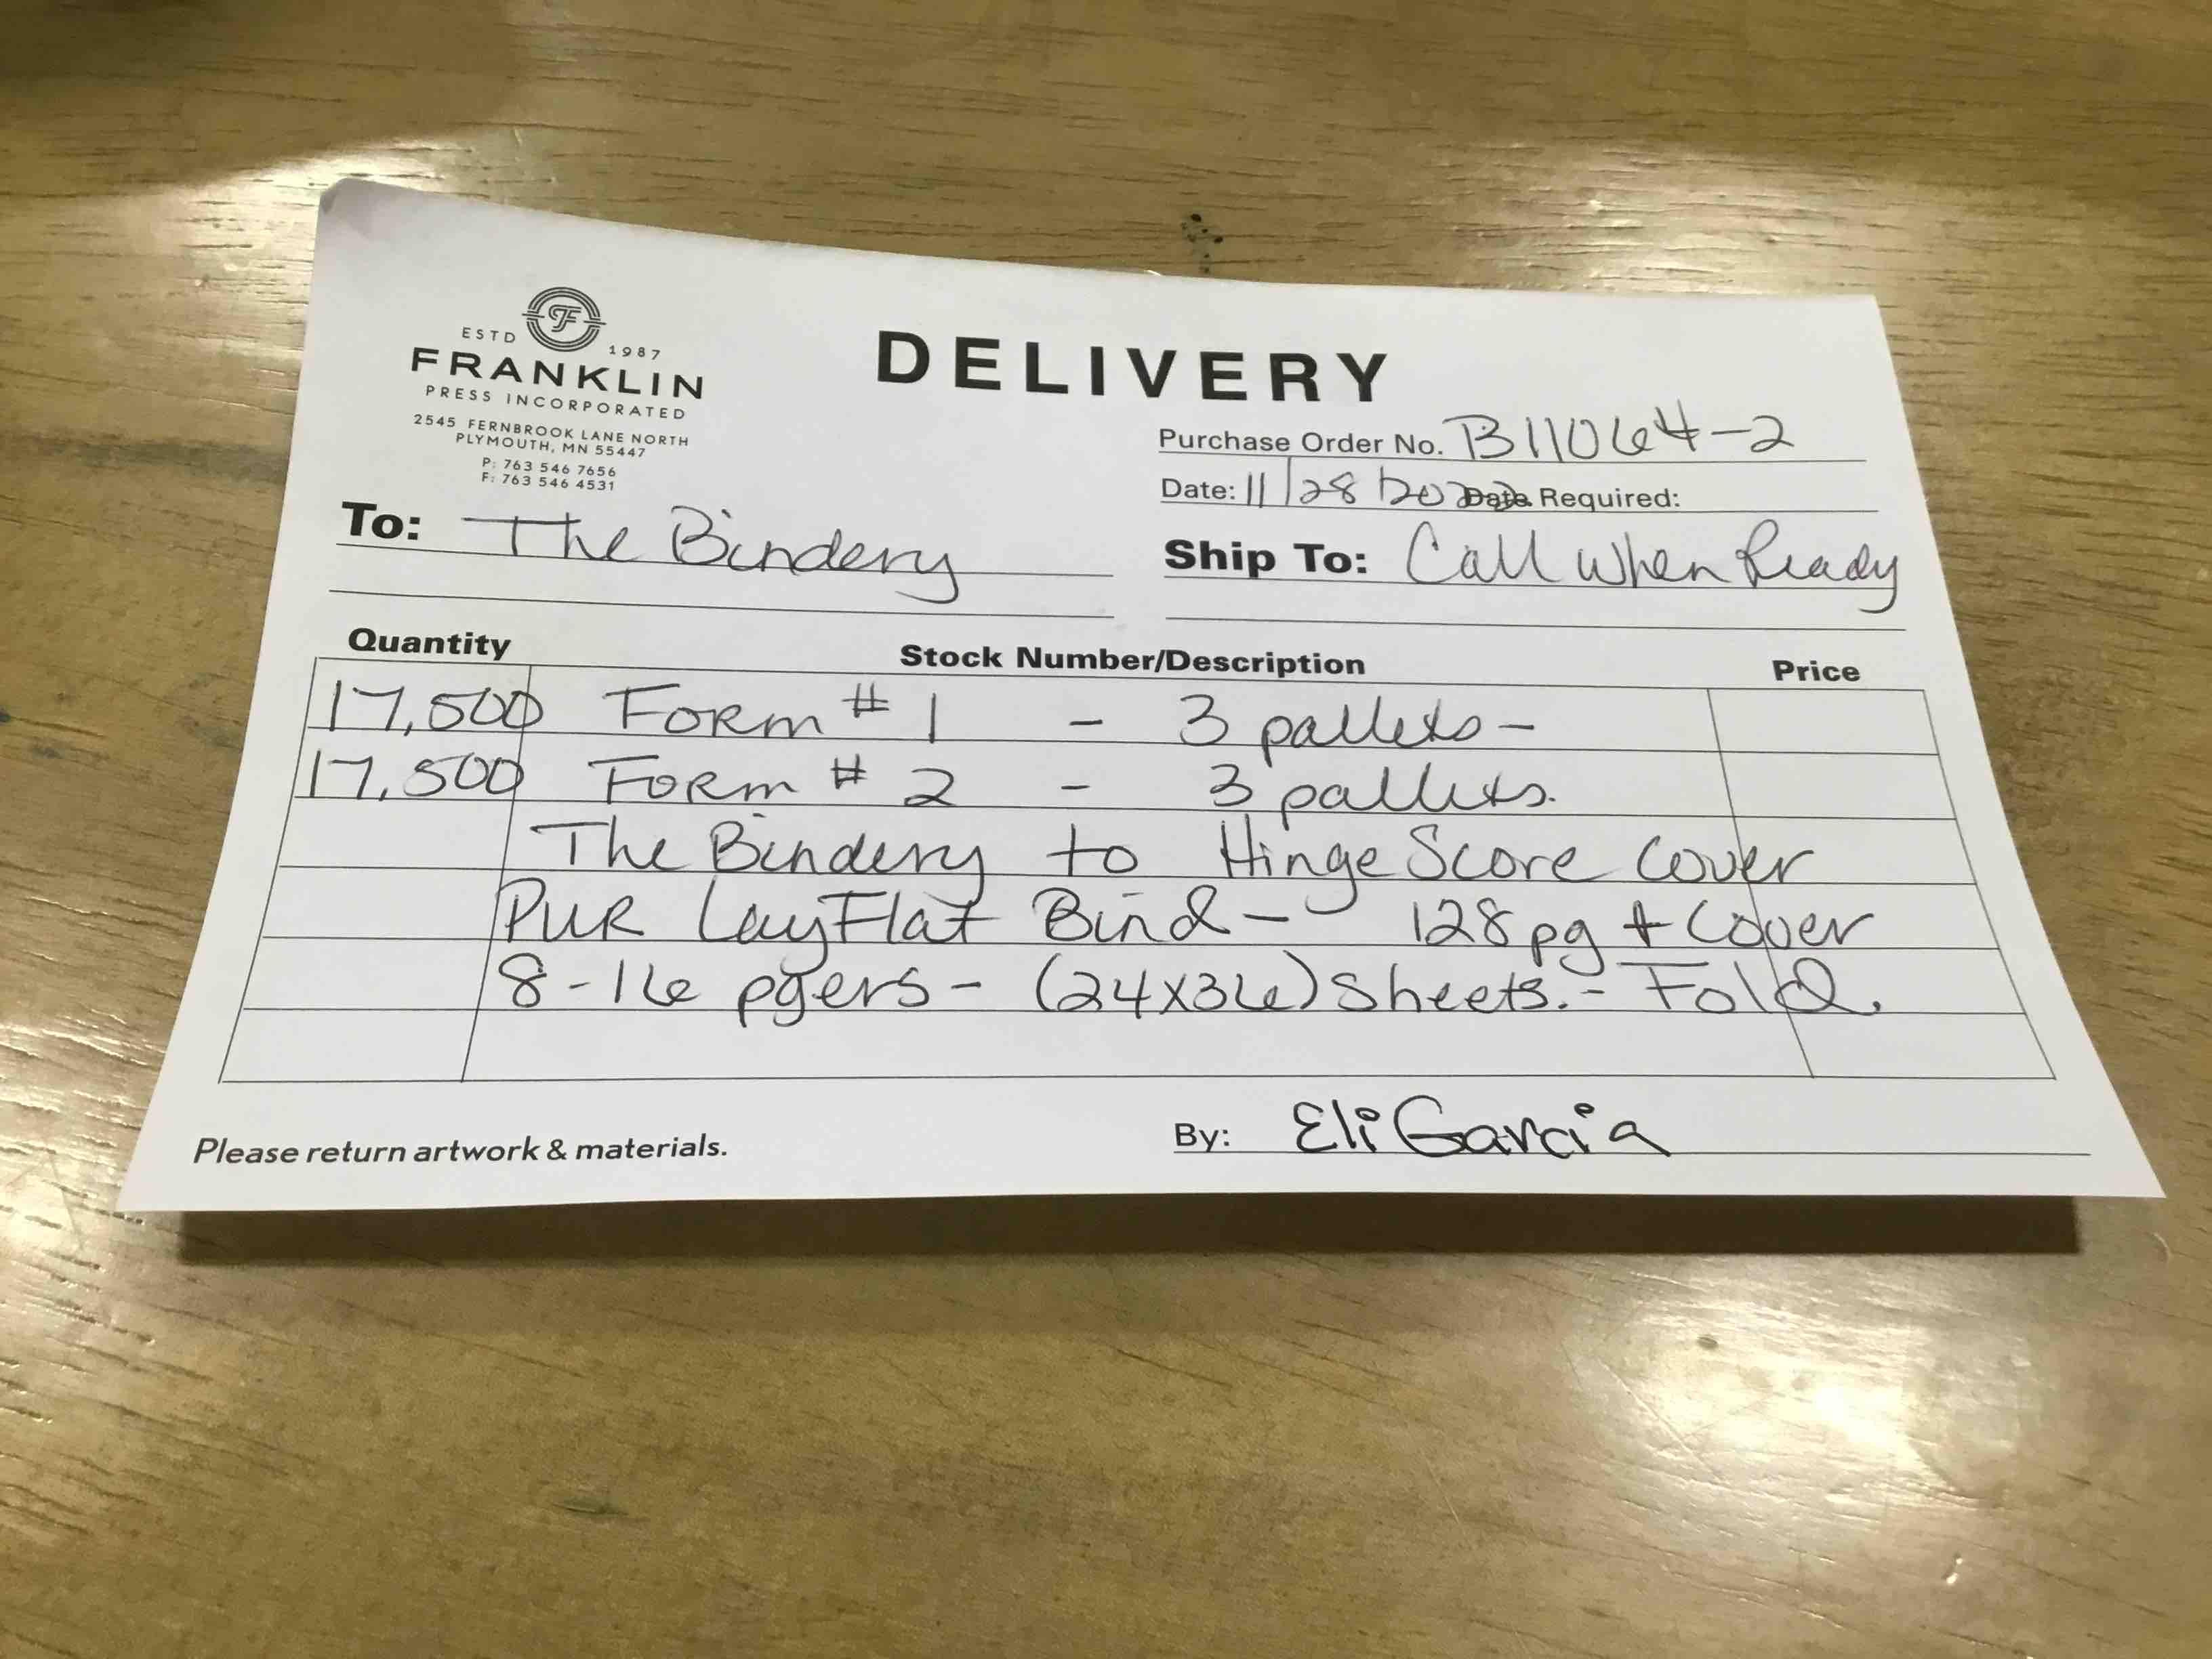 ESTD 1987
FRANKLIN
PRESS INCORPORATED
2545 FERNBROOK LANE NORTH
PLYMOUTH, MN 55447
P: 763 546 7656
F: 763 546 4531
DELIVERY
Purchase Order No. B11064-2
Date: 11/28/2022 Date Required:
To: The Bindery
Ship To: Call When Ready
Quantity Stock Number/Description Price
17,500 Form # 1 - 3 pallets -
17,500 Form # 2 - 3 pallets.
The Bindery to Hinge Score Cover
PUR LayFlat Bind - 128pg + Cover
8-16 pgers - (24X36) Sheets. - Fold.
Please return artwork & materials.
By: Eli Garcia